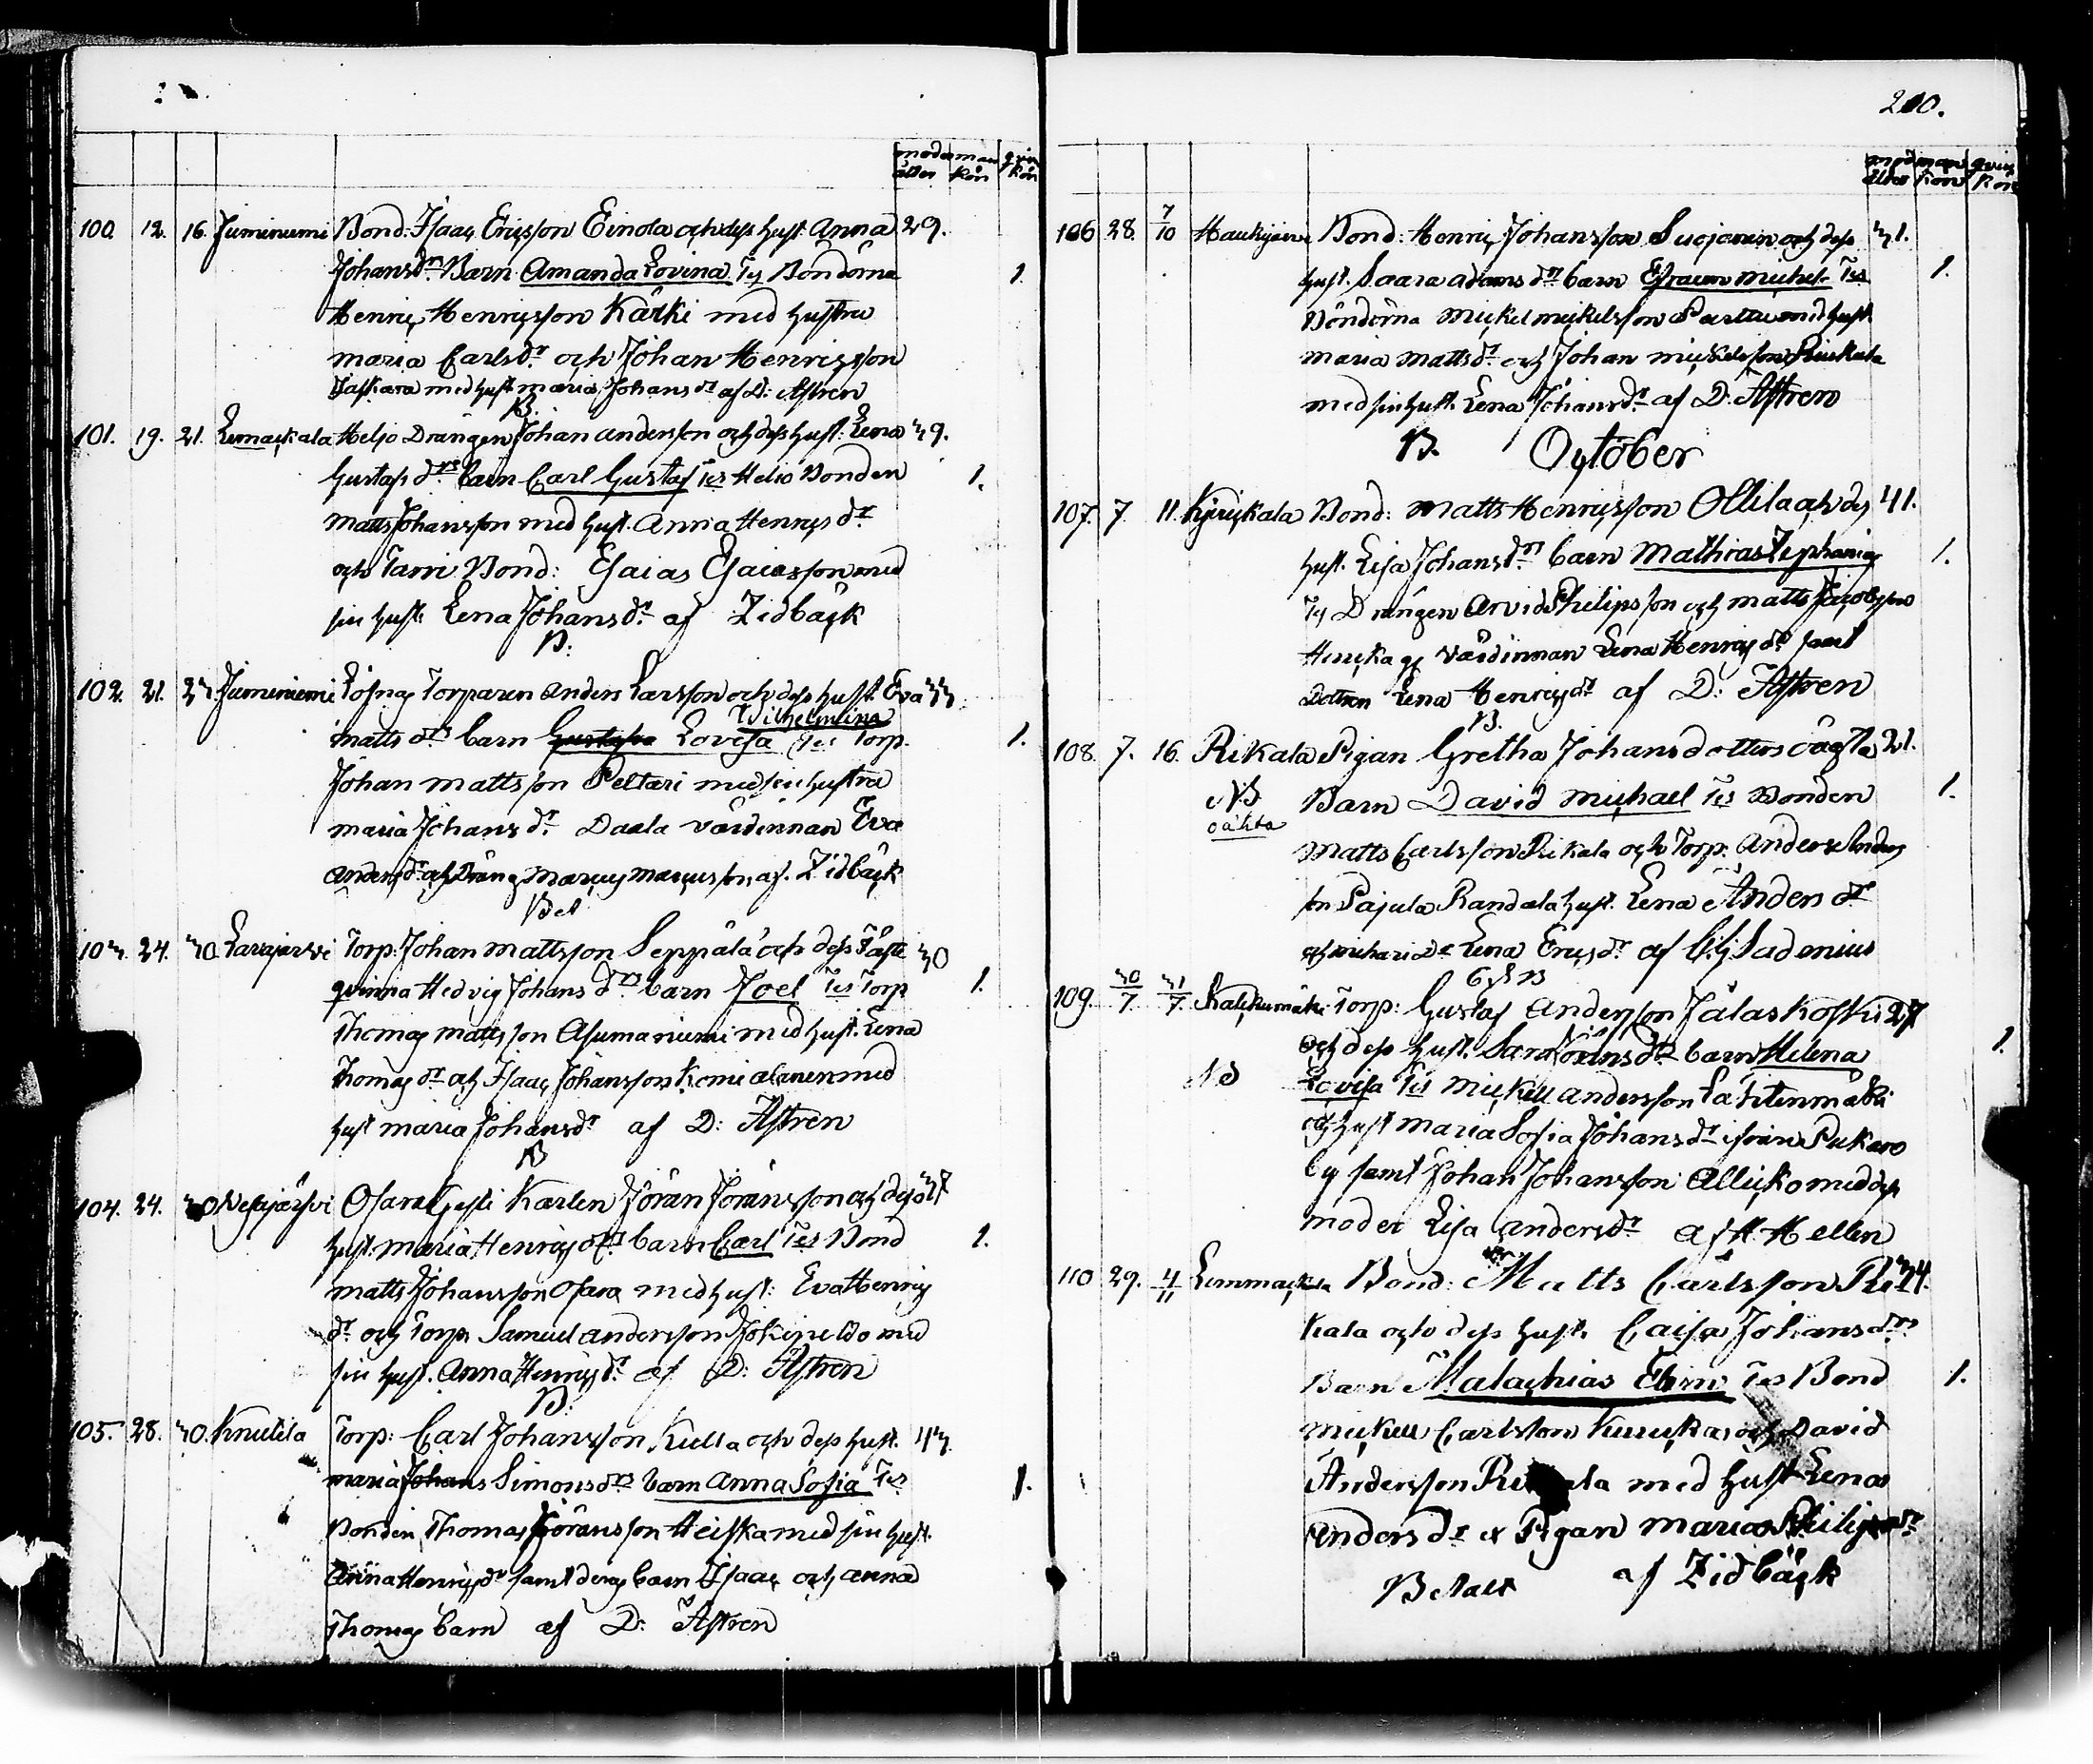 moder ålder man kön qvin kön
100. 12. 16. Juminiemi Bond: Isaac Ericsson Einola och dess hust. Anna 29.
Johansdrs Barn Amanda Lovina Tes Bönderna 1.
Henric Henricsson Kärki med hustru
Maria Carlsdr och Johan Henricsson
med hust Maria Johansdr af D: Astren
B.
101. 19. 21. Lemackala Heljo Drängen Johan Andersson och dess hust: Lena 39.
Gustafsdrs barn Carl Gustaf Tes Heljo Bonden 1.
Matts Johansson med hust. Anna Henricsdr
och Tarri Bond: Esaias Esaiasson med
sin hust. Lena Johansdr af Zidbäck
B:
102. 21. 23 Juminiemi Löfnäs Torparen Anders Larsson och dess hust. Eva 33
Wilhelmina
Matts drs barn Gustafva Lovisa Tes Torp. 1.
Johan Mattsson Peltari med sin hustru
Maria Johansdr. Daala värdinnan Eva
Andersdr och Dräng Marcus Marcusson af. Zidbäck
Bet
103. 24. 30 Larajärvi Torp: Johan Mattsson Seppälä och dess Fäste 30
qvinna Hedvig Johansdrs barn Joel Tes Torp 1.
Thomas Mattsson Asumaniemi med hust. Lena
Thomasdr och Isaac Johansson med
hust Maria Johansdr af D: Astren
B
104. 24. 30 Vesajärfvi Ofara Karlen Jöran Jöransson och dess 37
hust. Maria Henricsdrs barn Carl Tes Bond 1.
Matts Johansson Ofara med hust: Eva Henrics
dr och Torp. Samuel Andersson med
sin hust. Anna Henricsdr. af D: Astren
B:
105. 28. 30. Knutila Torp: Carl Johansson Kulla och dess hust. 43
Maria Johans Simonsdrs barn Anna Sofia Tes 1.
Bonden Thomas Jöransson Heiska med sin hust.
Anna Henricsdr samt deras barn Isaac och Anna
Thomas barn af D: Astren
210.
mod ålder man kön qvin kön
106 28. 7/10 Haukijärvi Bond: Henric Johansson Suojanen och dess 31.
hust. Saara Adamsdrs barn Efraim Michel Tes 1.
Bönderna Mickel Mickelsson Parttu med hust.
Maria Mattsdr och Johan Mickelsson
med sin hust. Lena Johansdr af D: Astren
B. October
107. 7. 11. Kyröskala Bond: Matts Henricsson Ollila och dess 41.
hust. Lisa Johansdrs barn Mathias Zephanias 1.
Tes Drängen Arvid Philipsson och Matts Jacobsson
värdinnan Lena Henricsdr samt
Dottren Lena Henricsdr af D: Astren
B.
108. 7. 16. Rikala Pigan Gretha Johansdotters oägta 21.
NB oäkta
Barn David Michael Tes Bonden 1.
Matts Carlsson Rikala och Torp: Anders Anders
son Pajula Randala hust. Lena Andersdr
och Lena Ericsdr af C: G: Sadenius
109. 30/7. 31/7. Torp: Gustaf Andersson Jalaskoski 27
och dess hust. Sara Jöransdrs barn Helena 1.
NB
Lovisa Tes Mickel Andersson Lähtenmäki
och hust Maria Sofia Johansdr ifrån Pukaro
by samt Johan Johansson med dess
moder Lisa Andersdr af H. Hellen
110 29. 4/11 Lemmackala Bond: Matts Carlsson Ri 34.
kala och dess hust. Caisa Johansdrs
Barn Malachias Elim Tes Bond 1.
Mickel Carlsson och David
Andersson Rikala med hust Lena
Andersdr et Pigan Maria Philipsdr
Betalt af Zidbäck